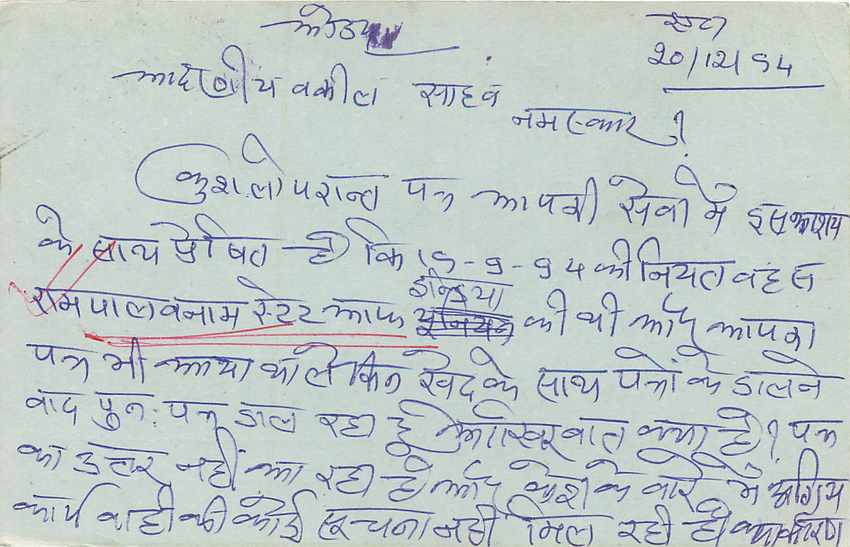 ओउम्
एटा
20/12/94
आदरणीय वकील साहब
नमस्कार।
कुशलोपरान्त पत्र आपकी सेवा में इस आशय
के साथ प्रेषित है कि 15-9-94 की नियत वहस
इन्डिया
रामपाल वनाम स्टेट आफ यूनियन की थी और आपका
पत्र भी आया था लेकिन खेद के साथ पत्रों के डालने
बाद पुनः पत्र डाल रहा हूँ आखिर बात क्या है? पत्र
का उत्तर नहीं आ रहा है और केश के बारे में अग्रिम
कार्यवाही की कोई सूचना नहीं मिल रही है क्या कारण